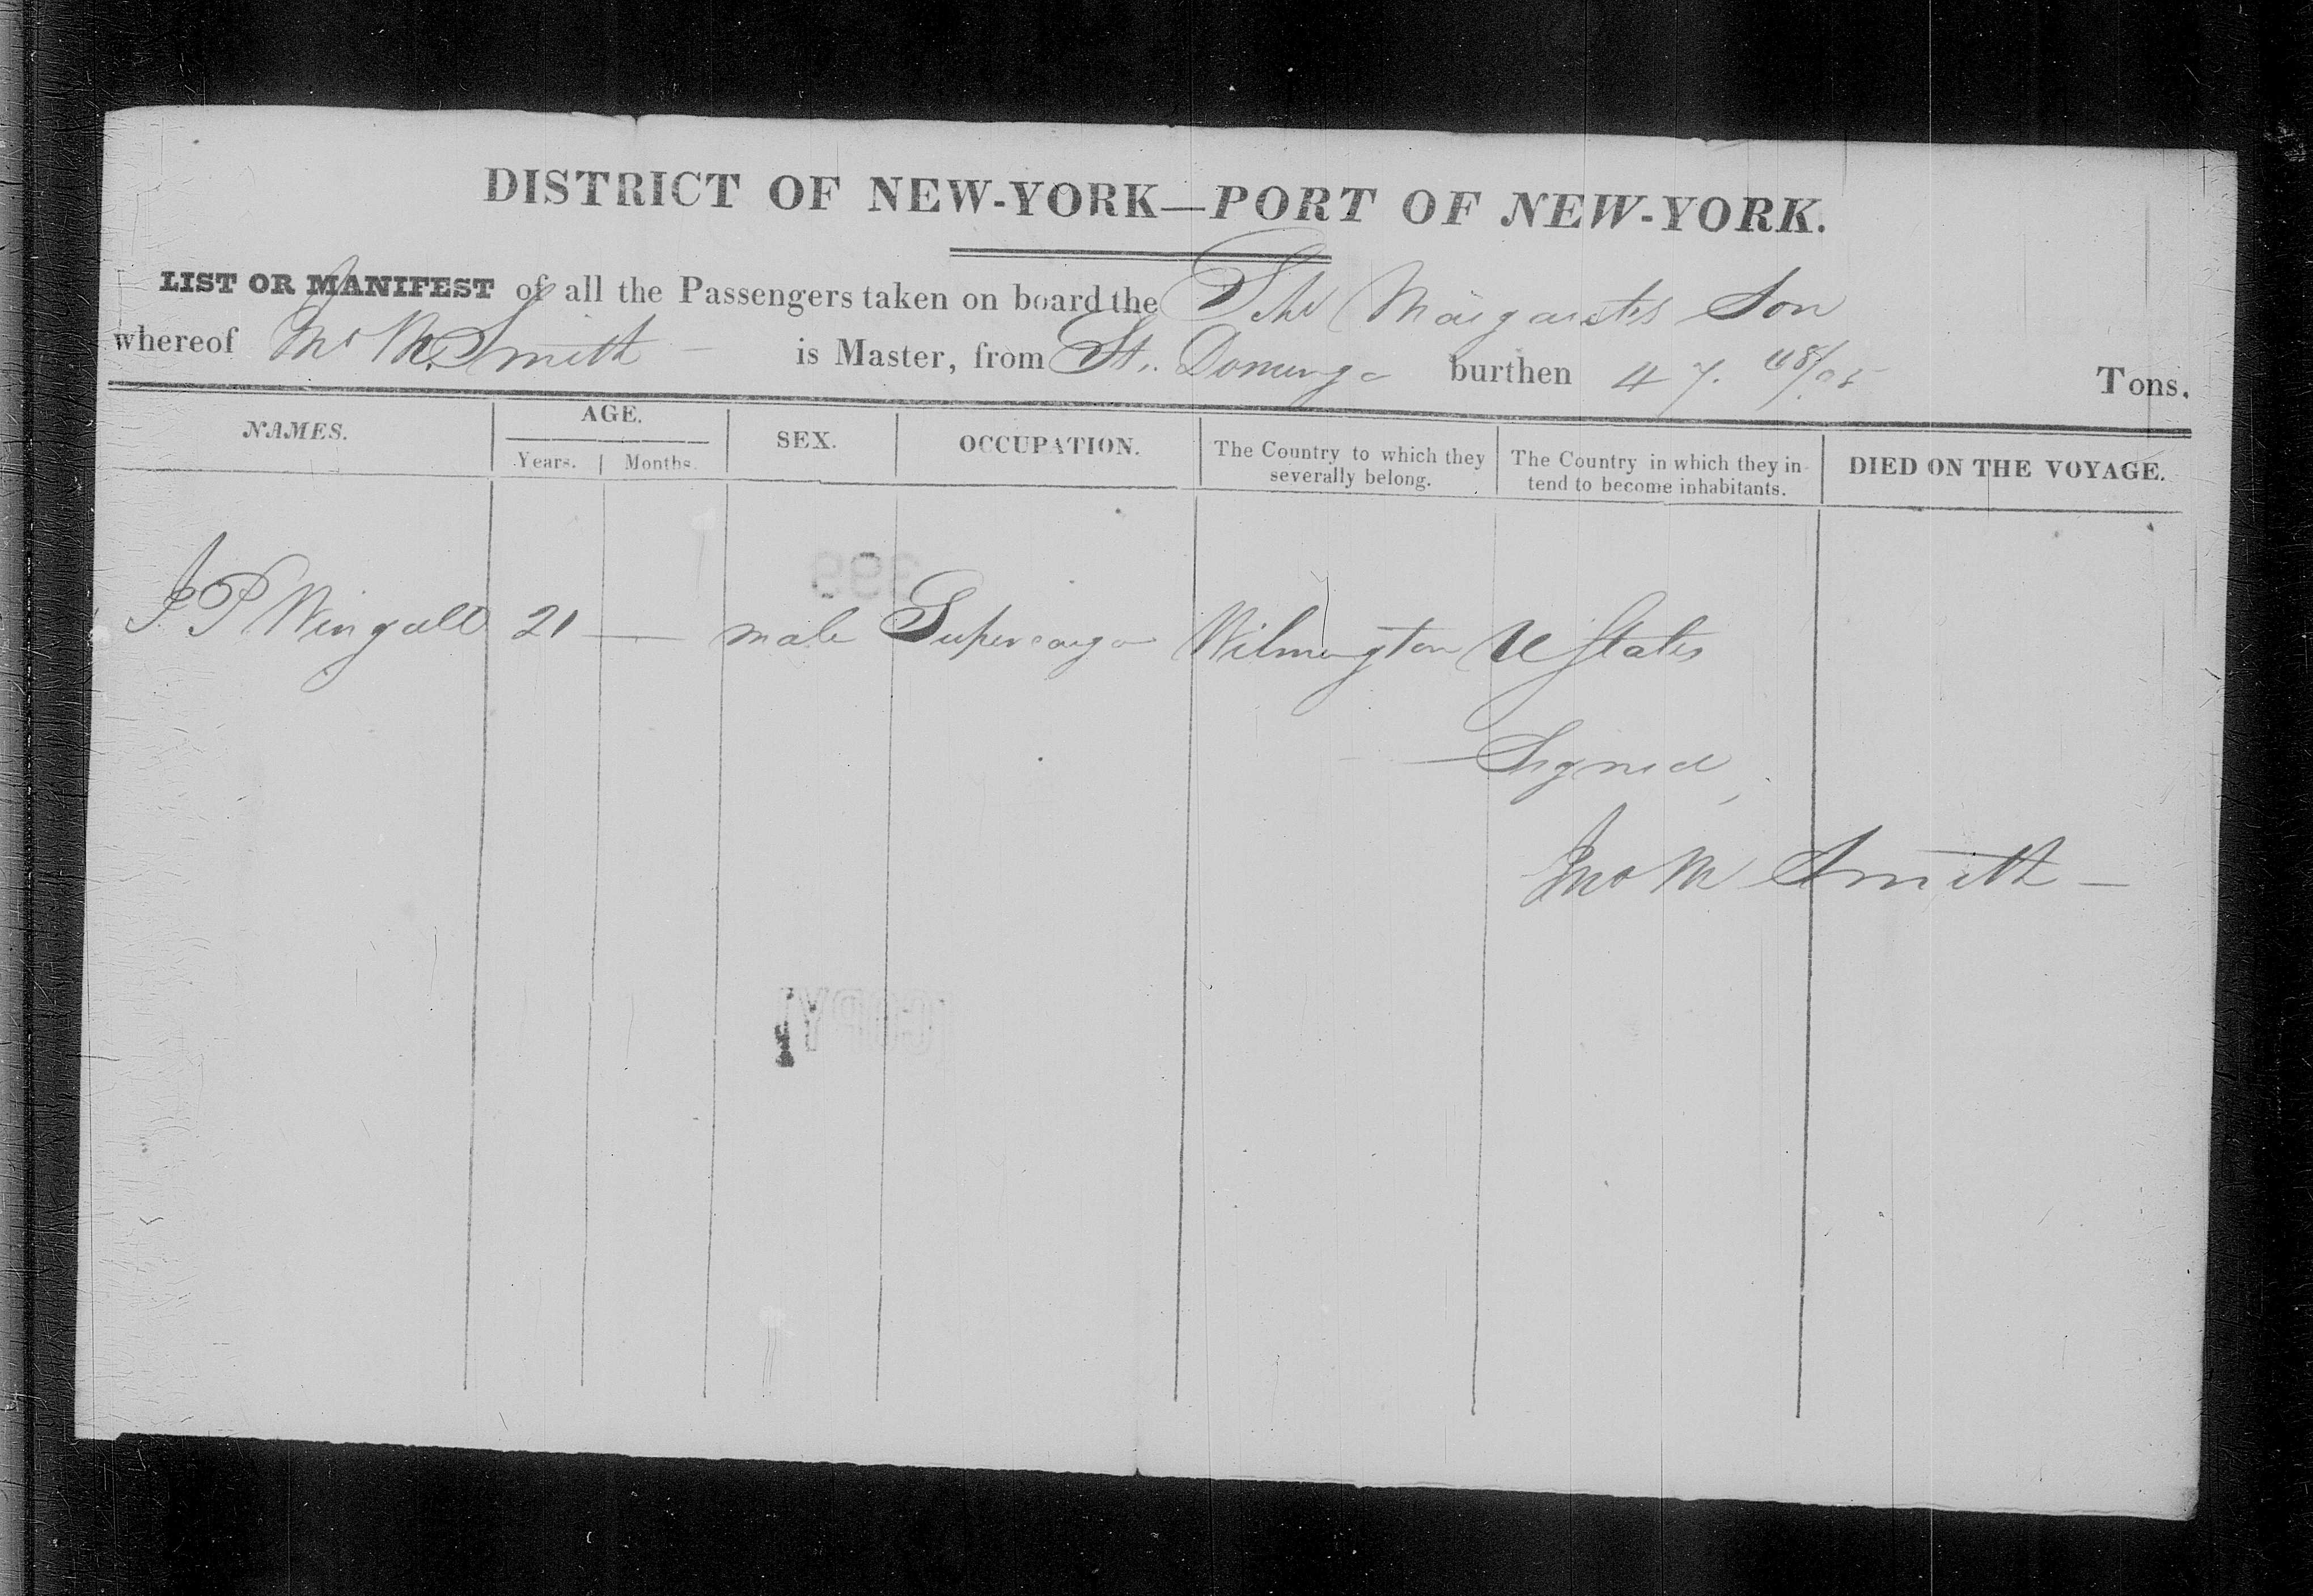 DISTRICT OF NEW-YORK—PORT OF NEW-YORK.
LIST OR MANIFEST of all the Passengers taken on board the Schr Margarets Son
whereof Jno M. Smith is Master, from St. Domingo burthen 47. 68/95 Tons.
NAMES. AGE. SEX. OCCUPATION. The Country to which they severally belong. The Country in which they in- tend to become inhabitants. DIED ON THE VOYAGE.
Years. Months.
J. P. Wingall 21 — male Supercargo Wilmington U States
Signed,
Jno M Smith —
COPY